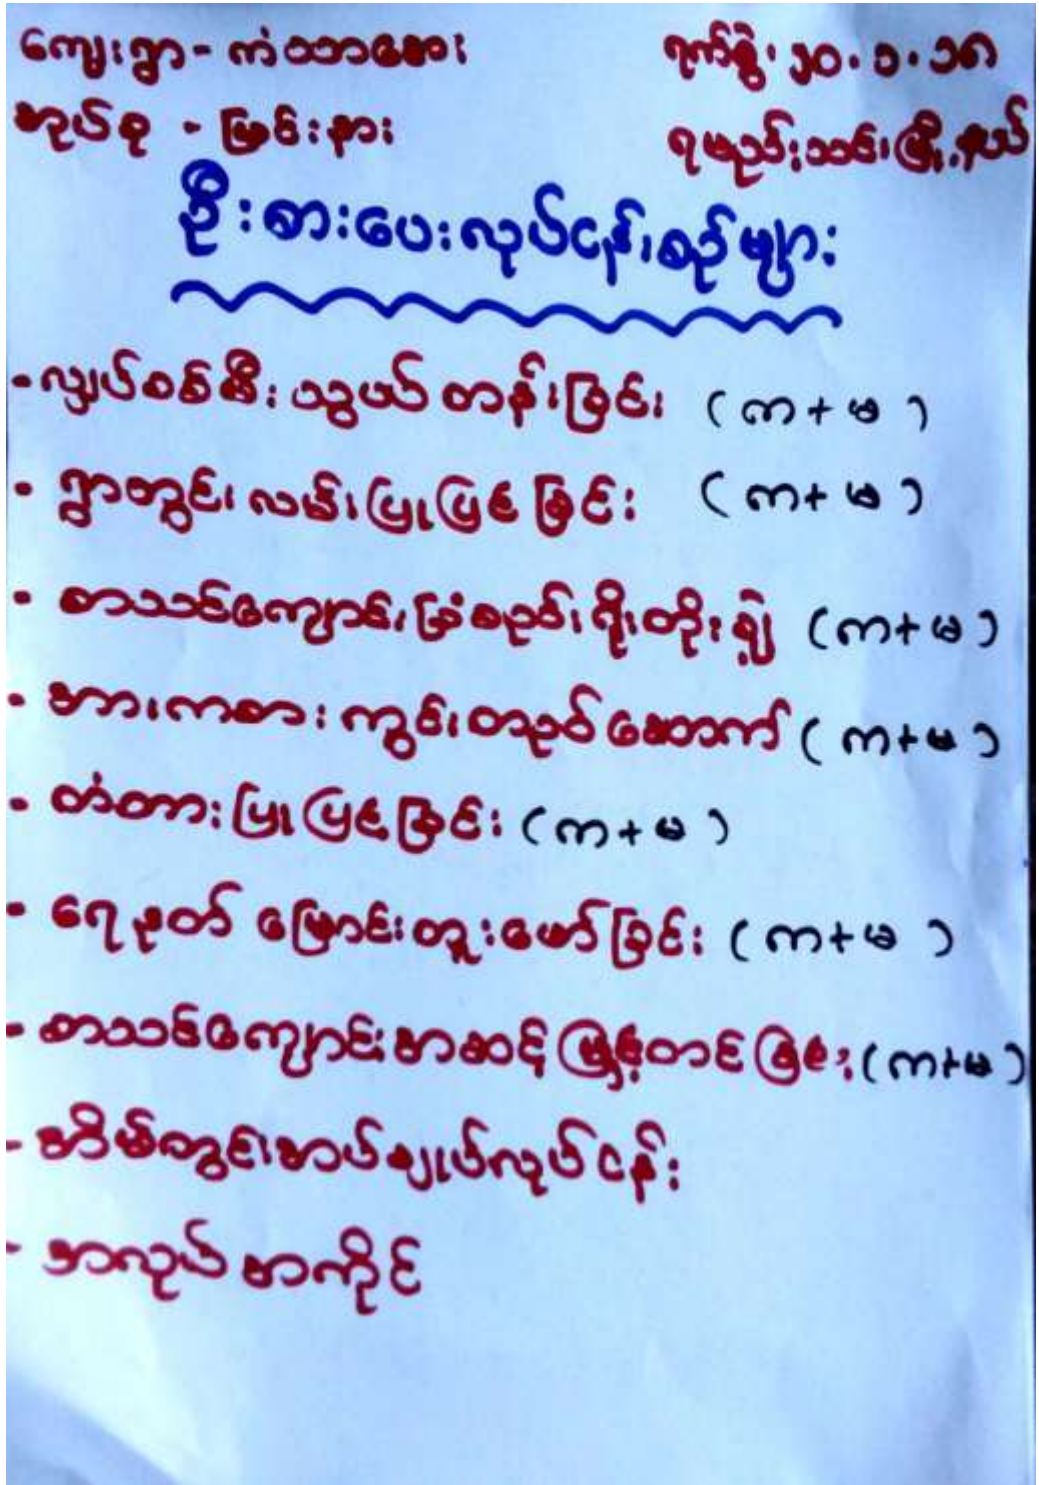 ကျေးရွာ - ကံသာအေး ရက်စွဲ. ၂၀.၁.၁၈
အုပ်စု - မြင်းနား ရမည်းသင်းမြို့နယ်
ဦးစားပေးလုပ်ငန်းစဉ်များ
- လျှပ်စစ်မီးသွယ်တန်းခြင်း (က+မ)
- ရွာတွင်းလမ်းပြုပြင်ခြင်း (က+မ)
- စာသင်ကျောင်းခြံစည်းရိုးတိုးချဲ့ (က+မ)
- အားကစားကွင်းတည်ဆောက် (က+မ)
- တံတားပြုပြင်ခြင်း (က+မ)
- ရေနုတ်မြောင်းတူးဖော်ခြင်း (က+မ)
- စာသင်ကျောင်းအဆင့်မြှင့်တင်ခြင်း (က+မ)
- အိမ်တွင်းအပ်ချုပ်လုပ်ငန်း
- အလုပ်အကိုင်